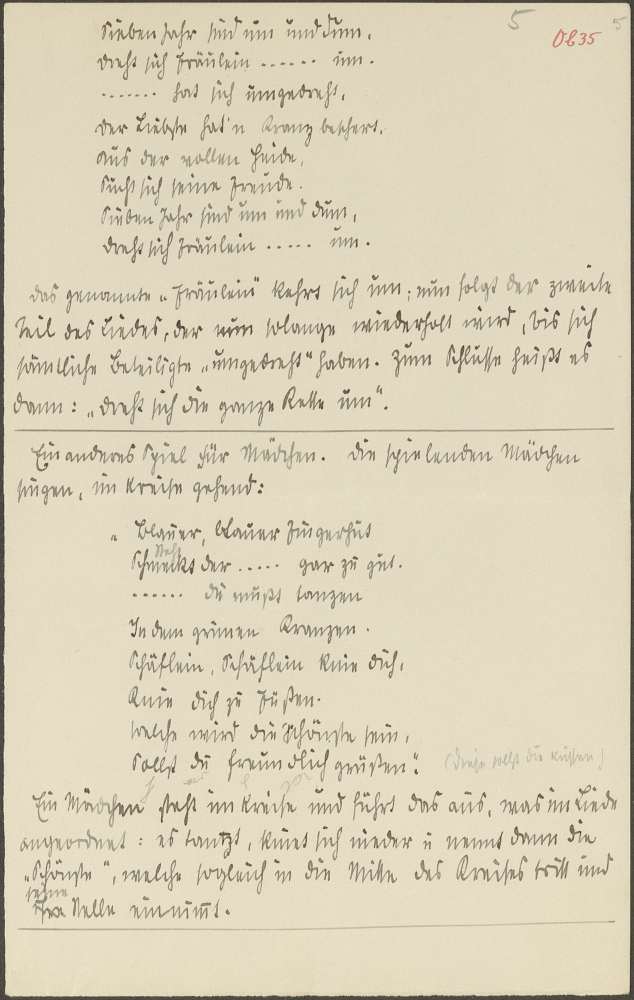 5 5
Ob35
Sieben Jahr sind um und dum,
dreht sich Fräulein ...... um.
....... hat sich umgedreht,
der Liebste hat'n Kranz beschert.
Aus der vollen Heide,
Sucht sich seine Freude.
Sieben Jahr sind um und dum,
dreht sich Fräulein ..... um.
Das genannte „Fräulein" kehrt sich um; nun folgt der zweite
Teil des Liedes, der nun solange wiederholt wird, bis sich
sämtliche Beteiligte „umgedreht" haben. Zum Schlusse heißt es
dann: „dreht sich die ganze Kette um".
Ein anderes Spiel für Mädchen. Die spielenden Mädchen
singen, im Kreise gehend:
„Blauer, blauer Fingerhut
steht
Schmeckt der ..... gar zu gut.
...... du mußt tanzen
In dem grünen Kranzen.
Schäflein, Schäflein knie dich,
Knie dich zu Füßen.
welche wird die Schönste sein,
Sollst du freundlich grüßen". (Diese sollst du küssen)
Ein Mädchen steht im Kreise und führt das aus, was im Liede
angeordnet: es tantzt, kniet sich nieder u nennt dann die
„Schönste", welche sogleich in die Mitte des Kreises tritt und
seine
Ihre Stelle einnimt.